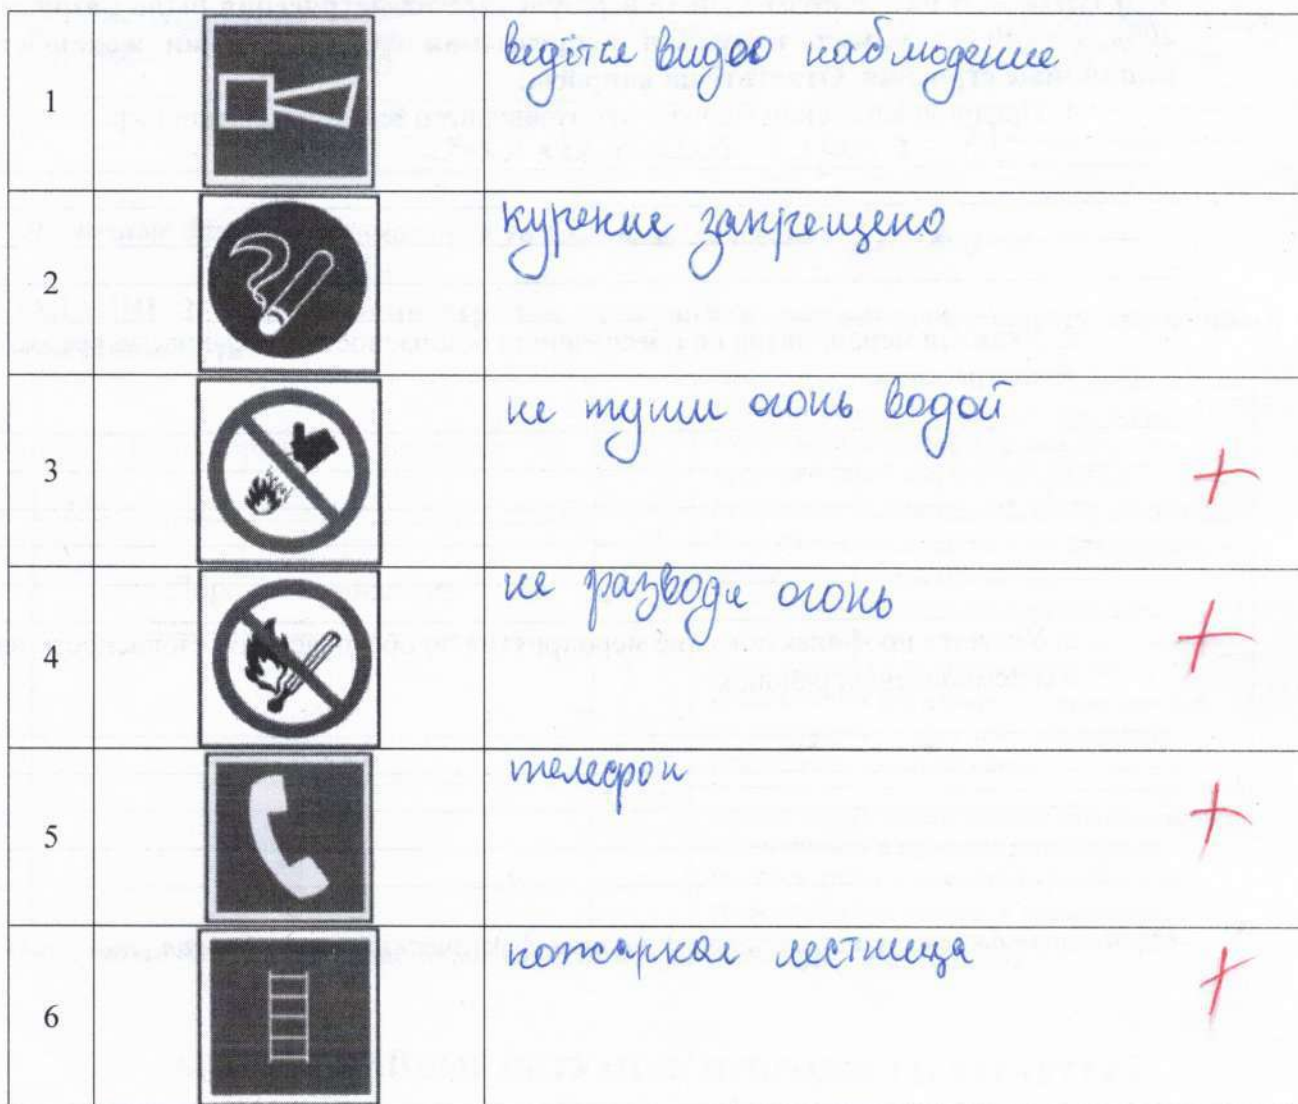 1 ведётся видео наблюдение
2 курение запрещено
3 не туши огонь водой
+
4 не разводи огонь
+
5 телефон
+
6 пожарная лестница
+